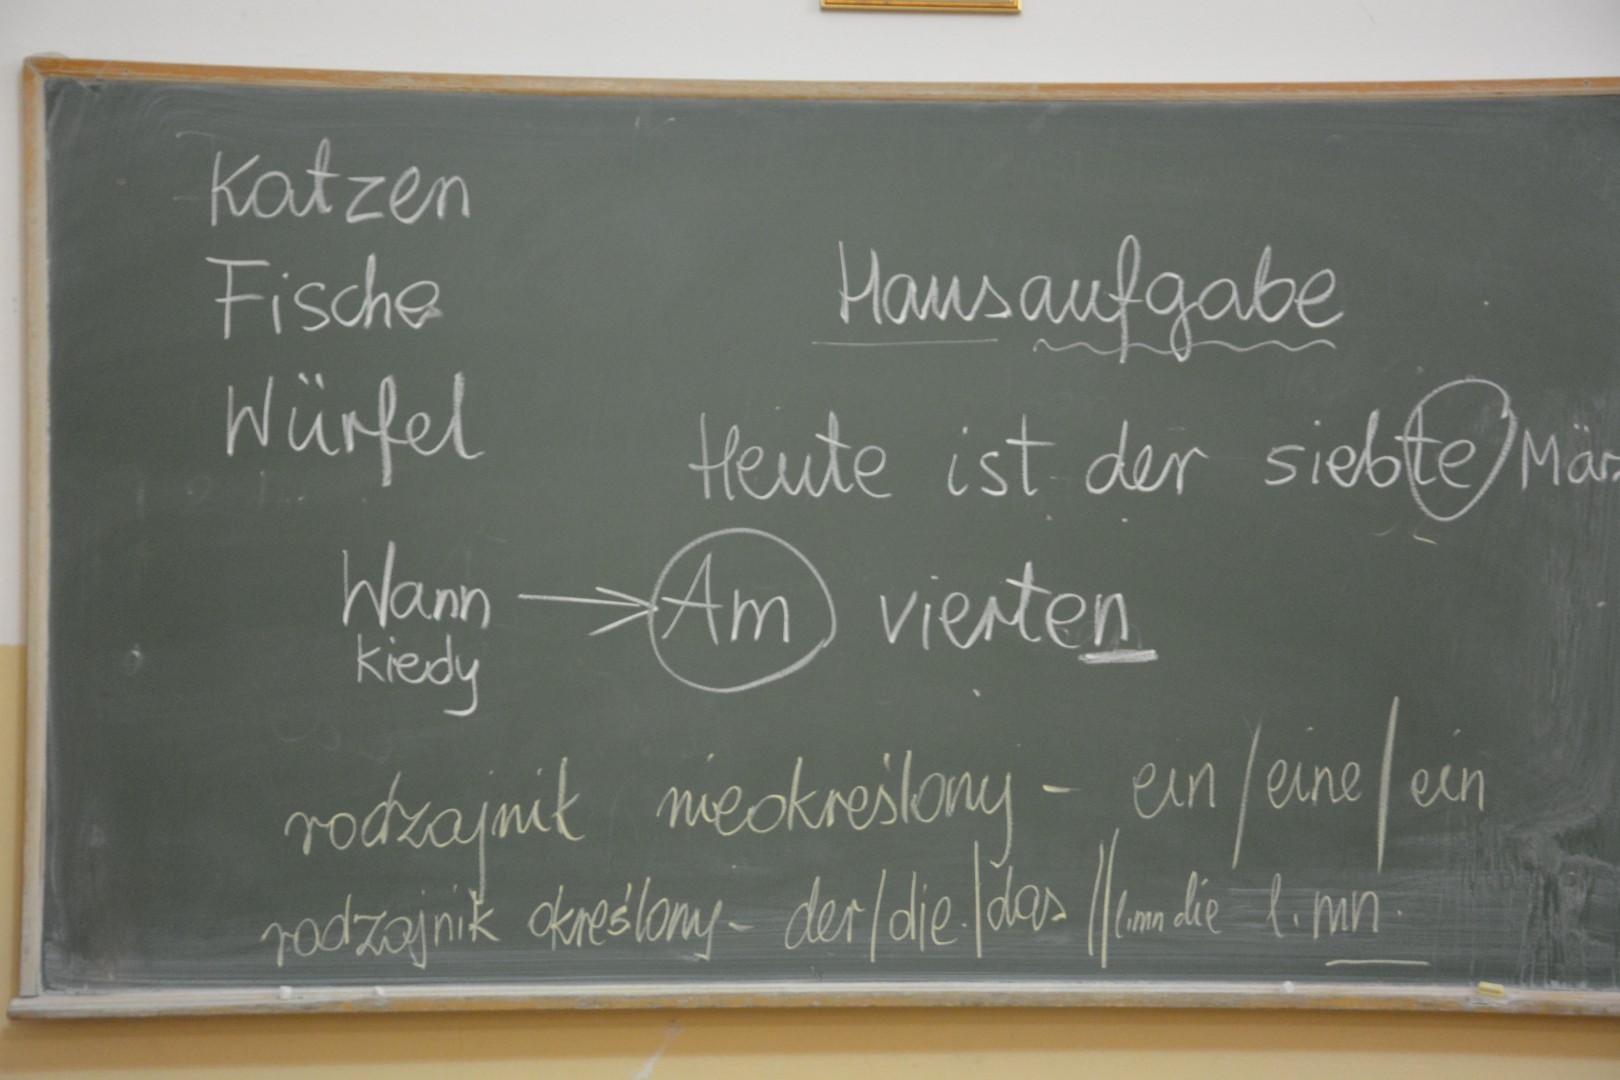 Katzen
Fische
Würfel
Hausaufgabe
Heute ist der siebte März
Wann → Am vierten
kiedy
rodzajnik nieokreślony - ein / eine / ein
rodzajnik określony - der / die / das // l.mn die l.mn.